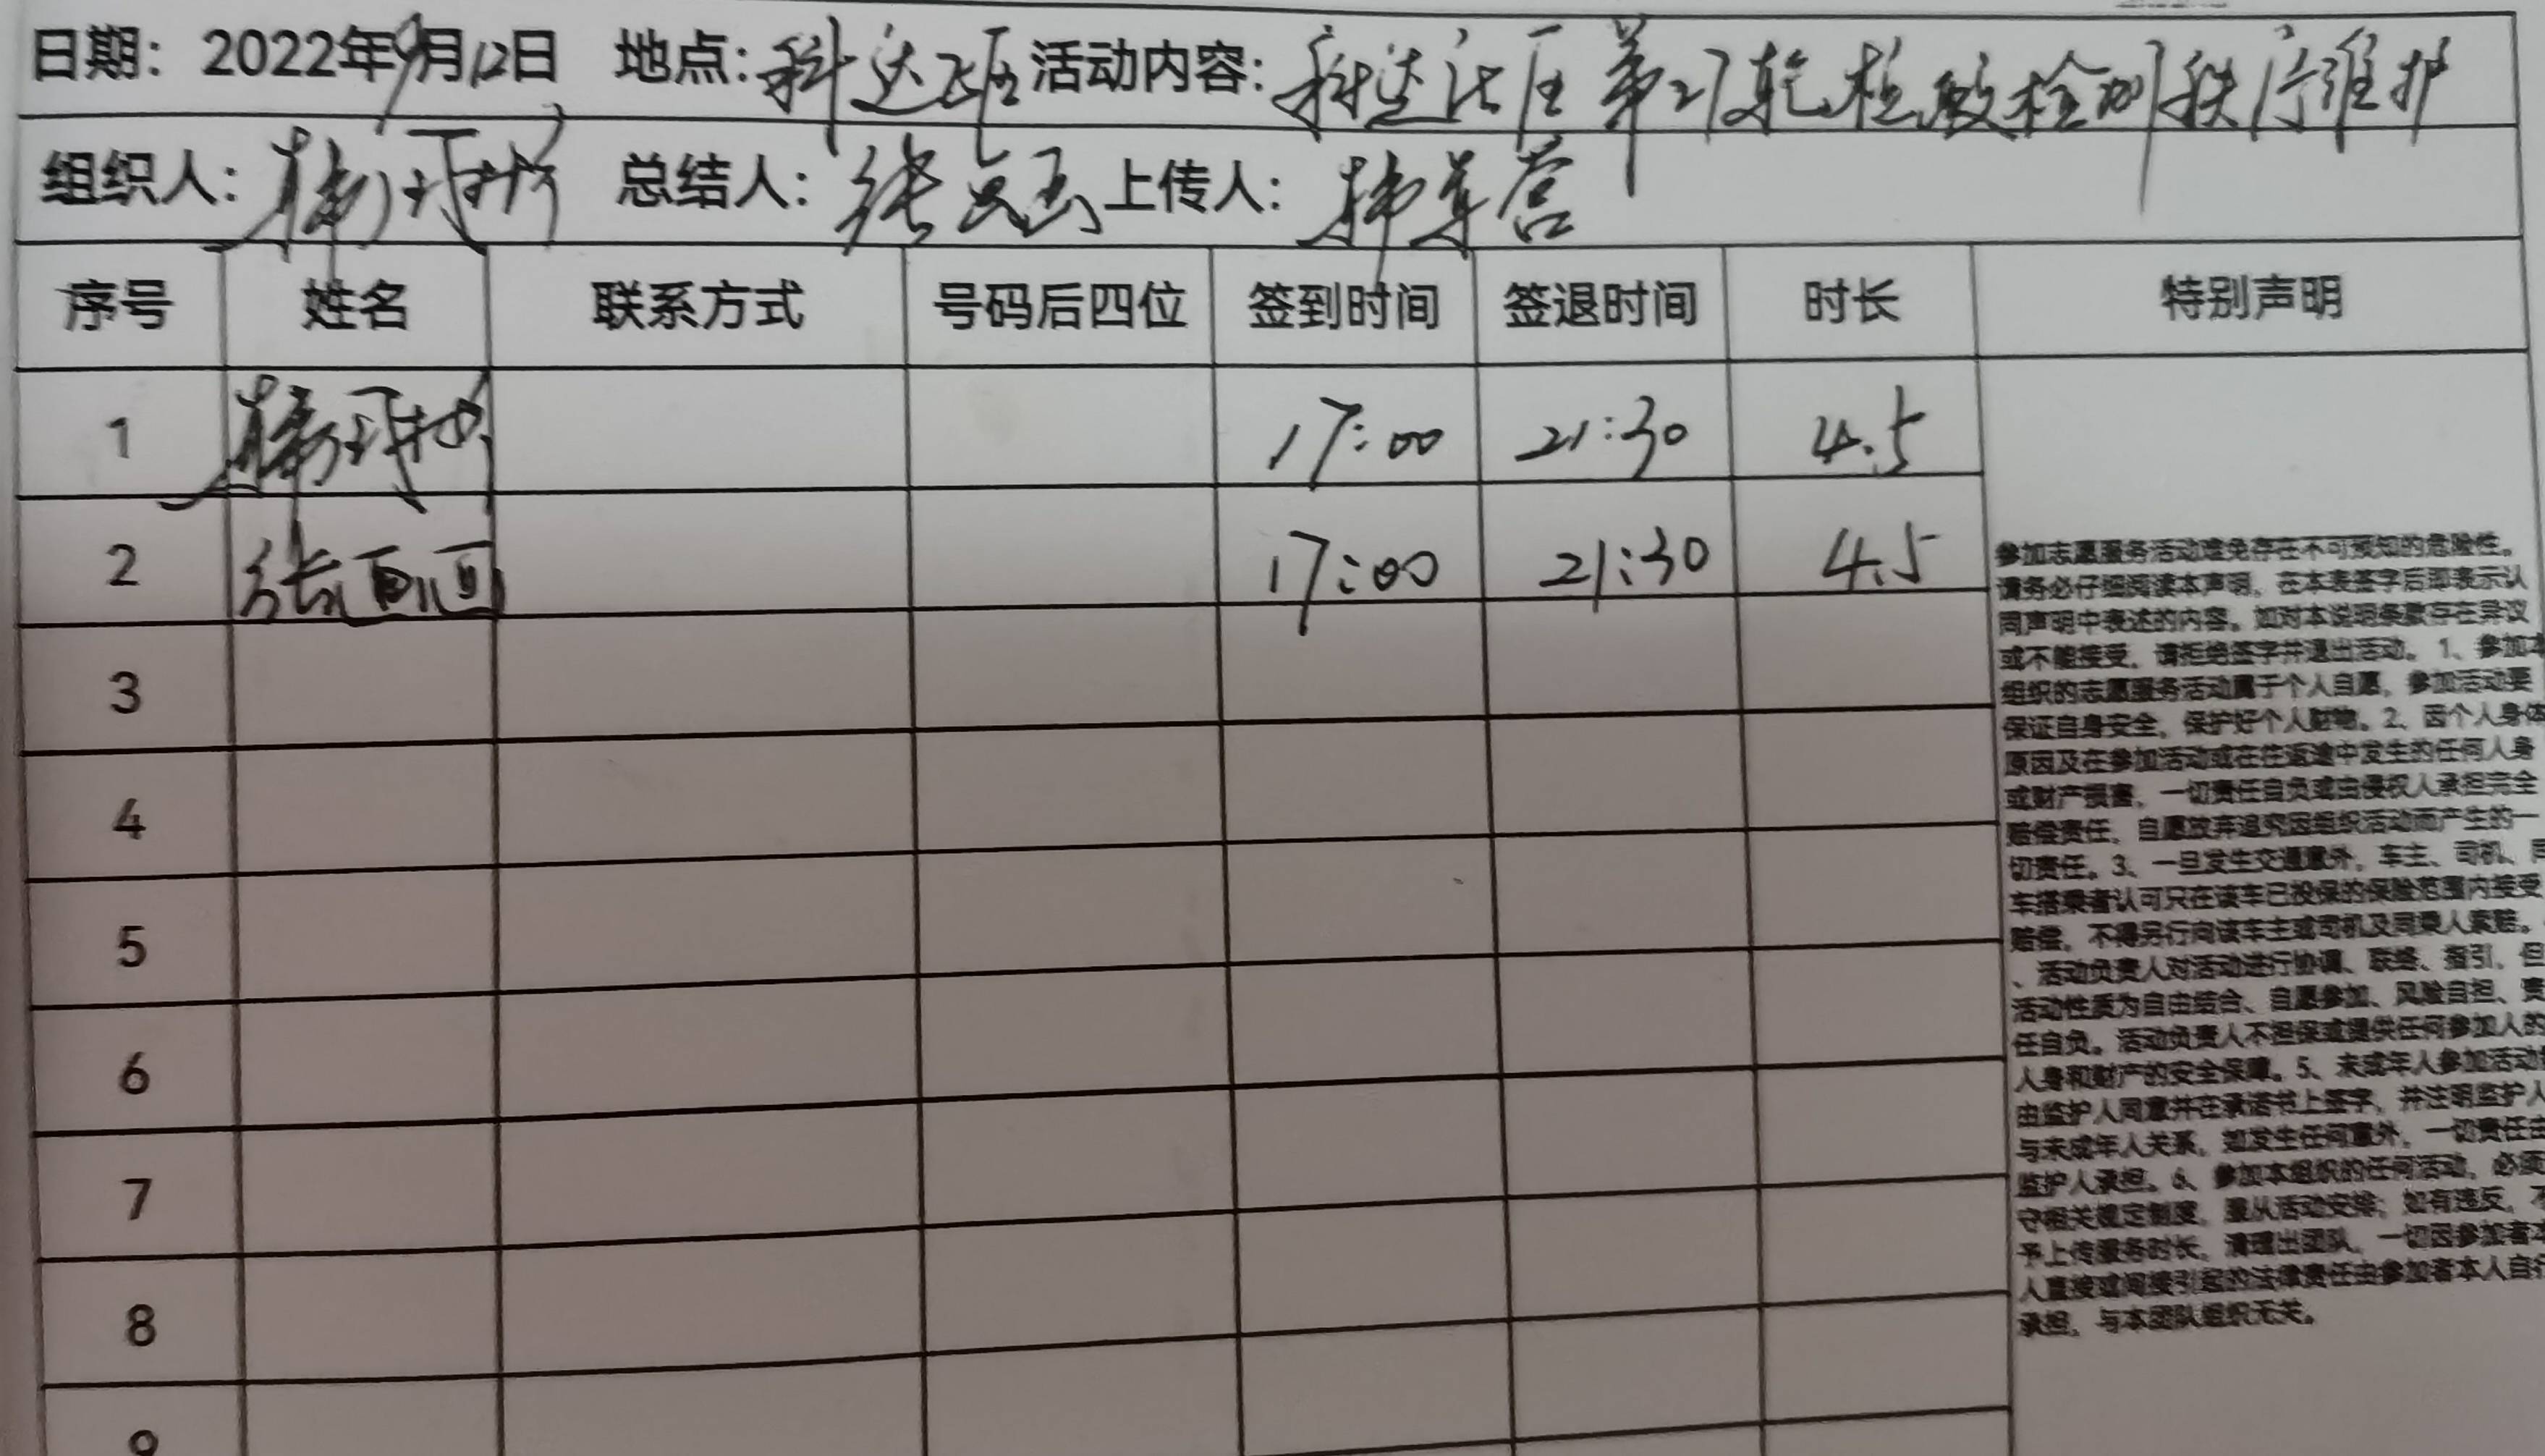 日期：2022年9月12日 地点：科达 活动内容：科达社区第27轮核酸检测秩序维护
组织人： 总结人：张 上传人：
序号 姓名 联系方式 号码后四位 签到时间 签退时间 时长 特别声明
1 17:00 21:30 4.5
2 张 17:00 21:30 4.5
3
4
5
6
7
8
9
参加志愿服务活动难免存在不可预知的危险性。
请务必仔细阅读本声明，在本表签字后即表示认
同声明中表述的内容。如对本说明条款存在异议
或不能接受，请拒绝签字并退出活动。1、参加本
组织的志愿服务活动属于个人自愿，参加活动要
保证自身安全，保护好个人财物。2、因个人身体
原因及在参加活动或在往返途中发生的任何人身
或财产损害，一切责任自负或由侵权人承担完全
赔偿责任，自愿放弃追究因组织活动而产生的一
切责任。3、一旦发生交通意外，车主、司机、同
车搭乘者认可只在该车已投保的保险范围内接受
赔偿，不得另行向该车主或司机及同乘人索赔。
、活动负责人对活动进行协调、联络、指引，但
活动性质为自由结合、自愿参加、风险自担、责
任自负。活动负责人不担保或提供任何参加人的
人身和财产的安全保障。5、未成年人参加活动
由监护人同意并在承诺书上签字，并注明监护人
与未成年人关系，如发生任何意外，一切责任由
监护人承担。6、参加本组织的任何活动，必须
守相关规定制度，服从活动安排；如有违反，不
予上传服务时长，清理出团队，一切因参加者本
人直接或间接引起的法律责任由参加者本人自行
承担，与本团队组织无关。